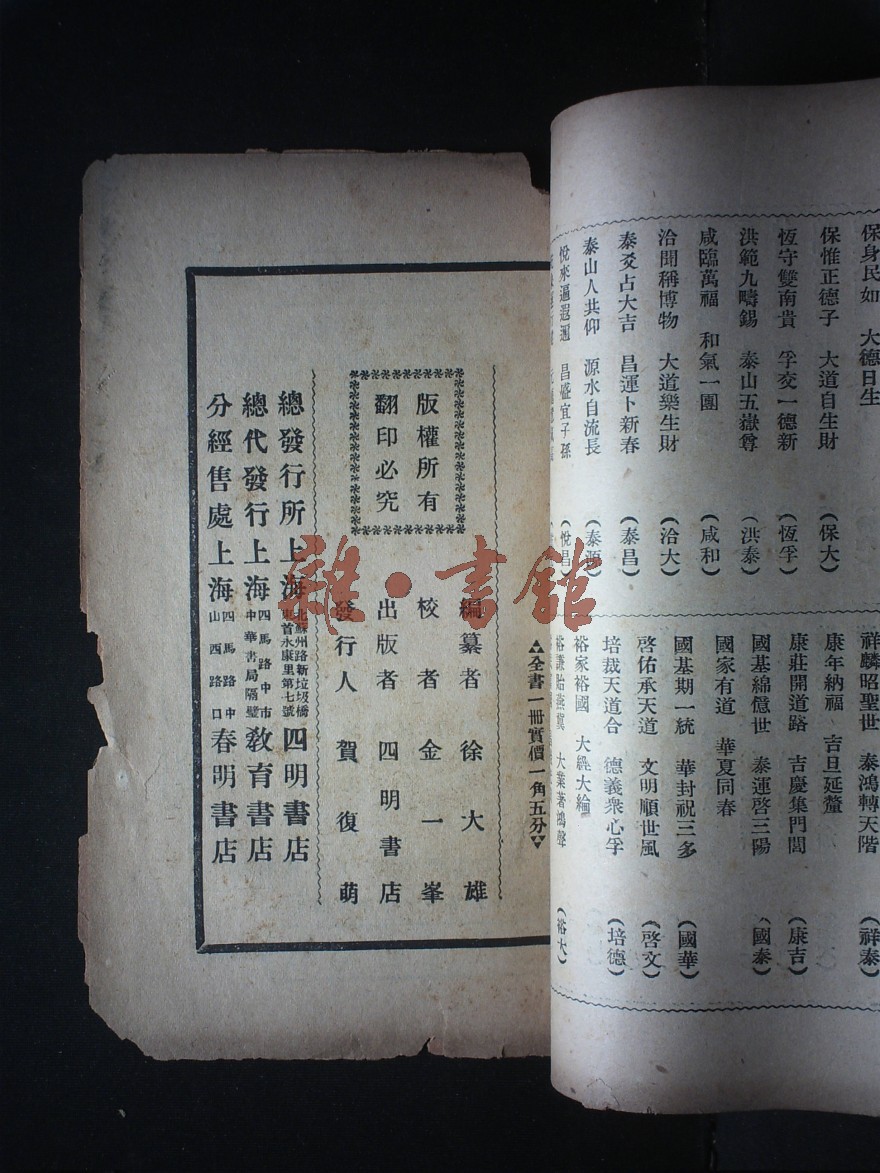 保身民如 大德日生
保惟正德子 大道自生財 （保大）
恆守雙南貴 孚交一德新 （恆孚）
洪範九疇錫 泰山五嶽尊 （洪泰）
咸臨萬福 和氣一團 （咸和）
洽聞稱博物 大道樂生財 （洽大）
泰爻占大吉 昌運卜新春 （泰昌）
泰山人共仰 源水自流長 （泰源）
悅來遍遐邇 昌盛宜子孫 （悅昌）
祥麟昭聖世 泰鴻轉天階 （祥泰）
康年納福 吉旦延釐
康莊開道路 吉慶集門閭 （康吉）
國基綿億世 泰運啓三陽 （國泰）
國家有道 華夏同春
國基期一統 華封祝三多 （國華）
啓佑承天道 文明順世風 （啓文）
培裁天道合 德義衆心孚 （培德）
裕家裕國 大經大綸
裕謙貽燕翼 大業著鴻聲 （裕大）
全書一冊實價一角五分
版權所有
翻印必究
編纂者 徐大雄
校者 金一峯
出版者 四明書店
發行人 賀復萌
總發行所上海北蘇州路新垃圾橋東首永康里第七號四明書店
總代發行上海四馬路中市中華書局隔壁教育書店
分經售處上海四馬路中山西路口春明書店
雜·書館